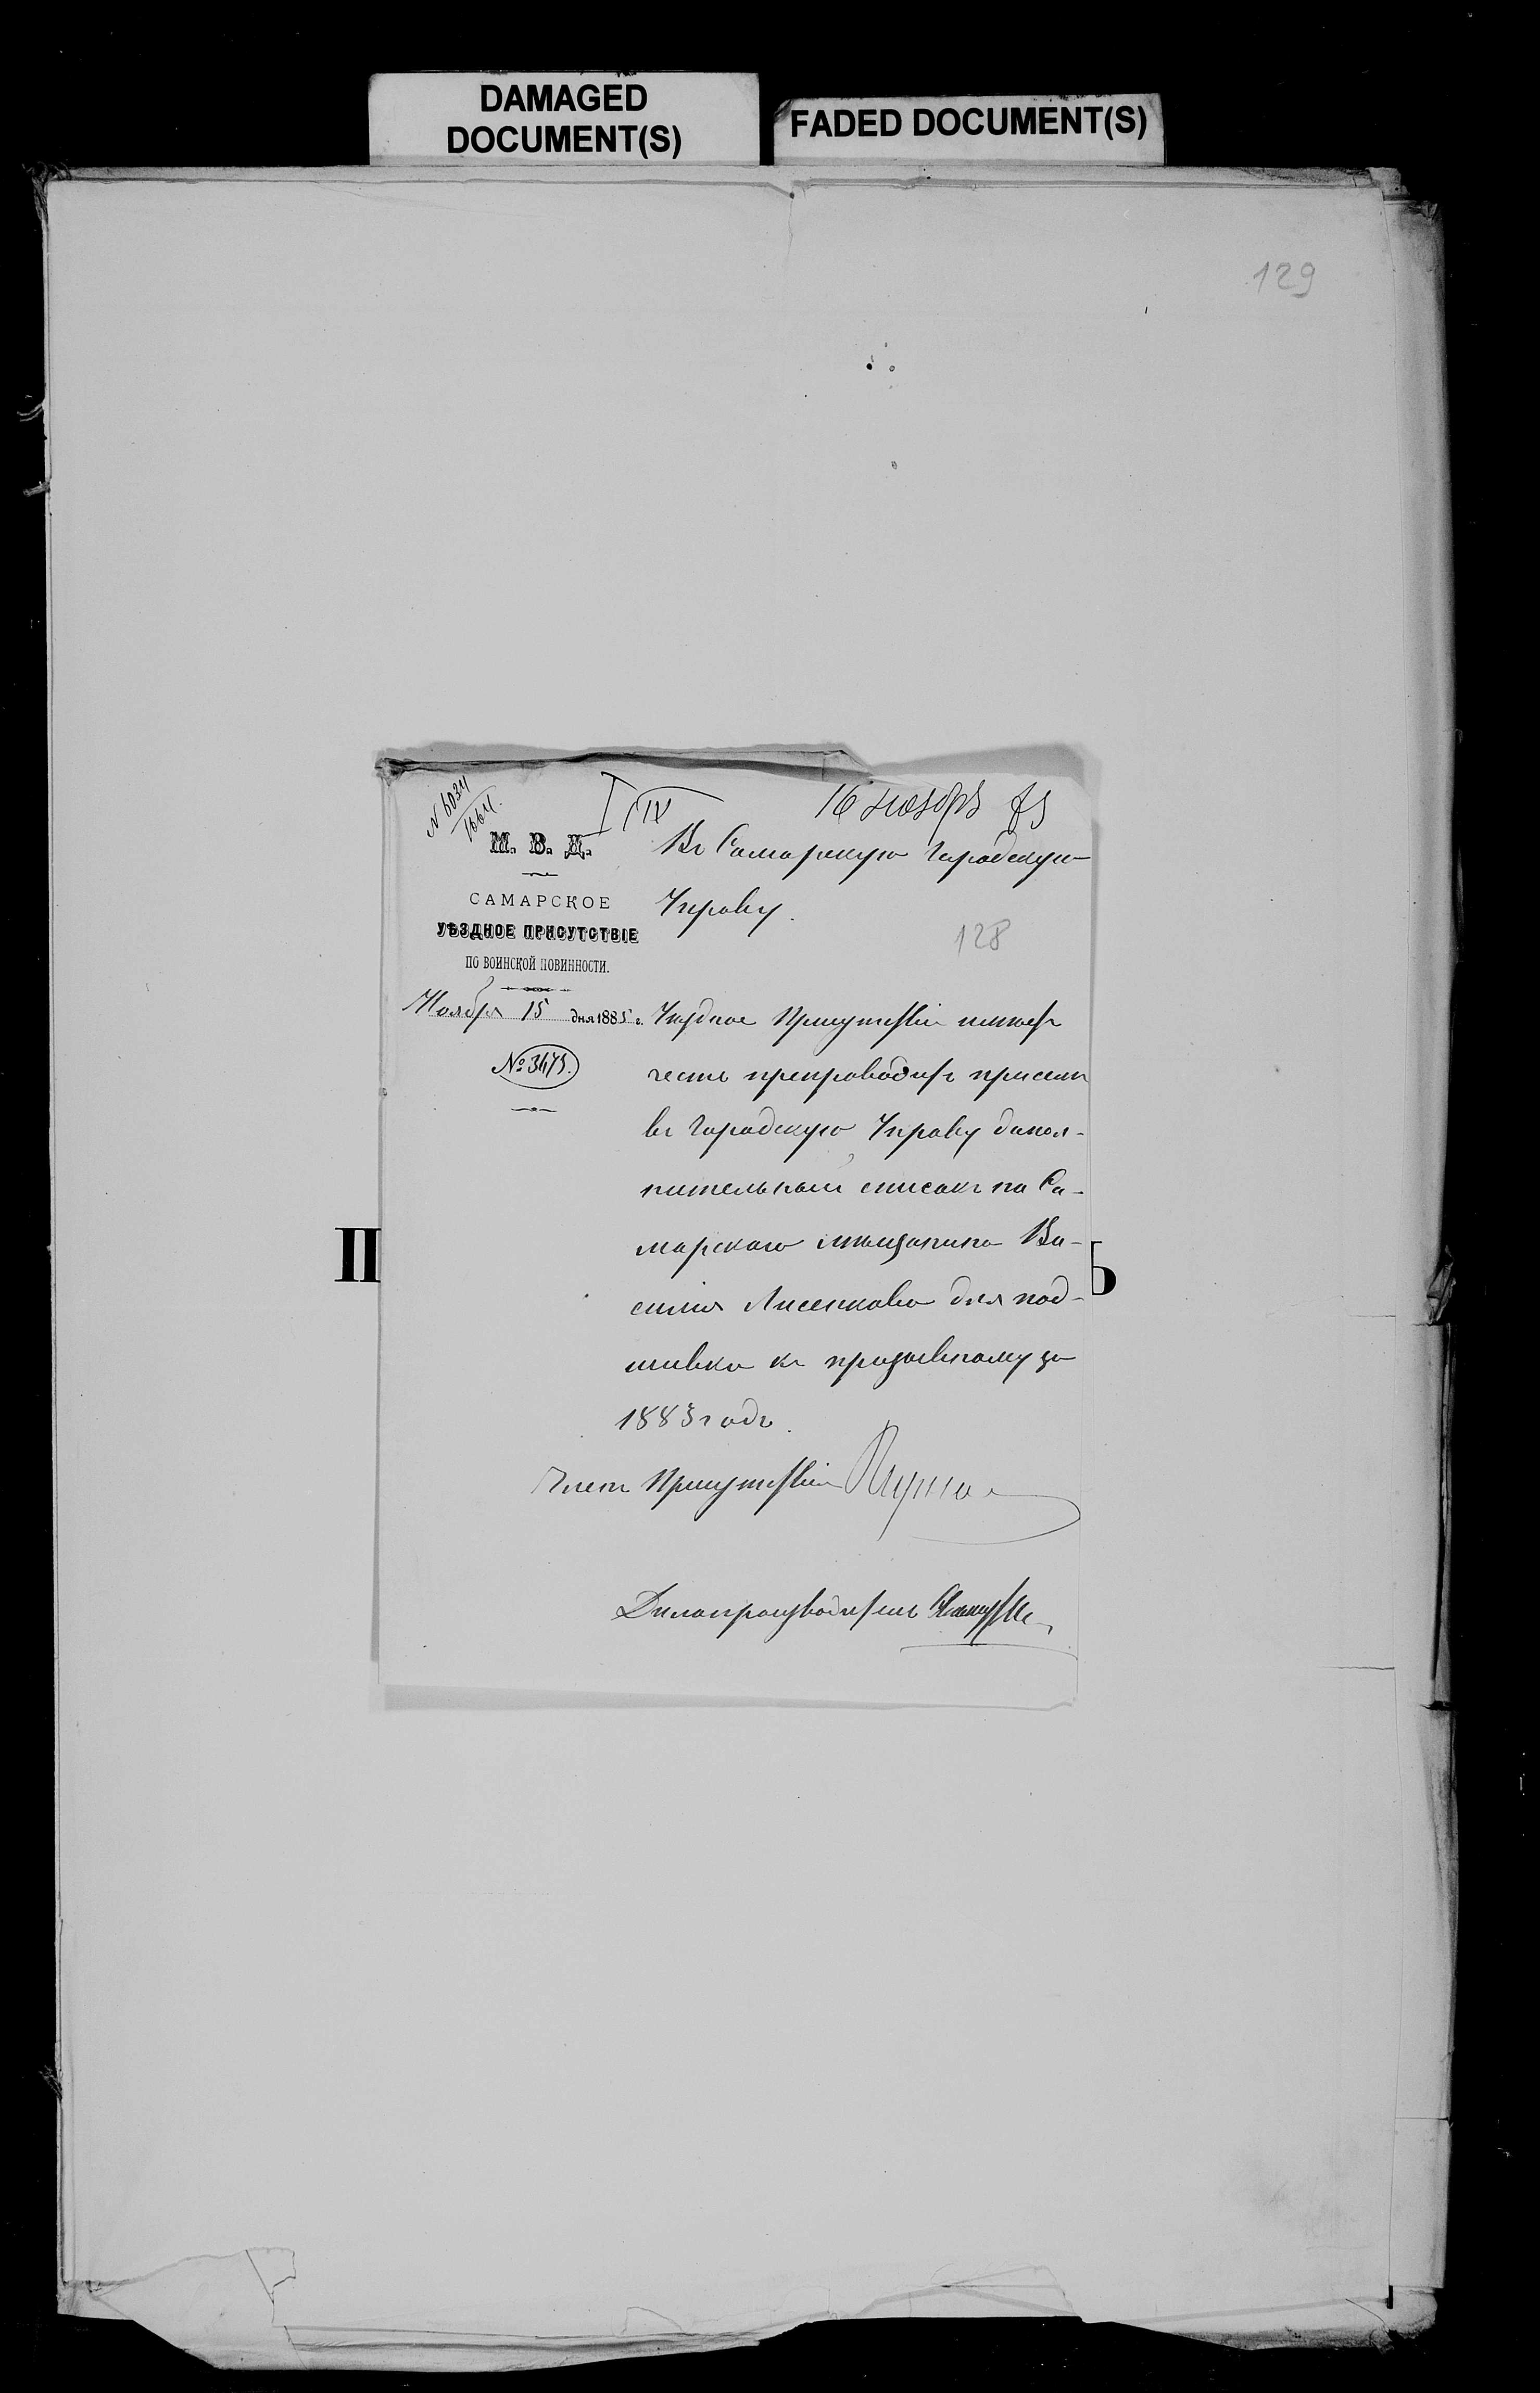 DAMAGED
DOCUMENT(S)
FADED DOCUMENT(S)
129
N 6034
1664.
I IV
16 ноября 85
М. В. Д.
САМАРСКОЕ
УѢЗДНОЕ ПРИСУТСТВІЕ
ПО ВОИНСКОЙ ПОВИННОСТИ.
Ноября 15 дня 1885 г.
№ 3475.
Въ Самарскую Городскую
Управу.
128
Уѣздное Присутствіе имѣетъ
честь препроводить при семъ
въ Городскую Управу допол-
нительный списокъ на Са-
марскаго мѣщанина Ва-
силія Лисенкова для под-
шивки къ призывному за
1883 годъ.
Членъ Присутствія
Дѣлопроизводитель
II
Б